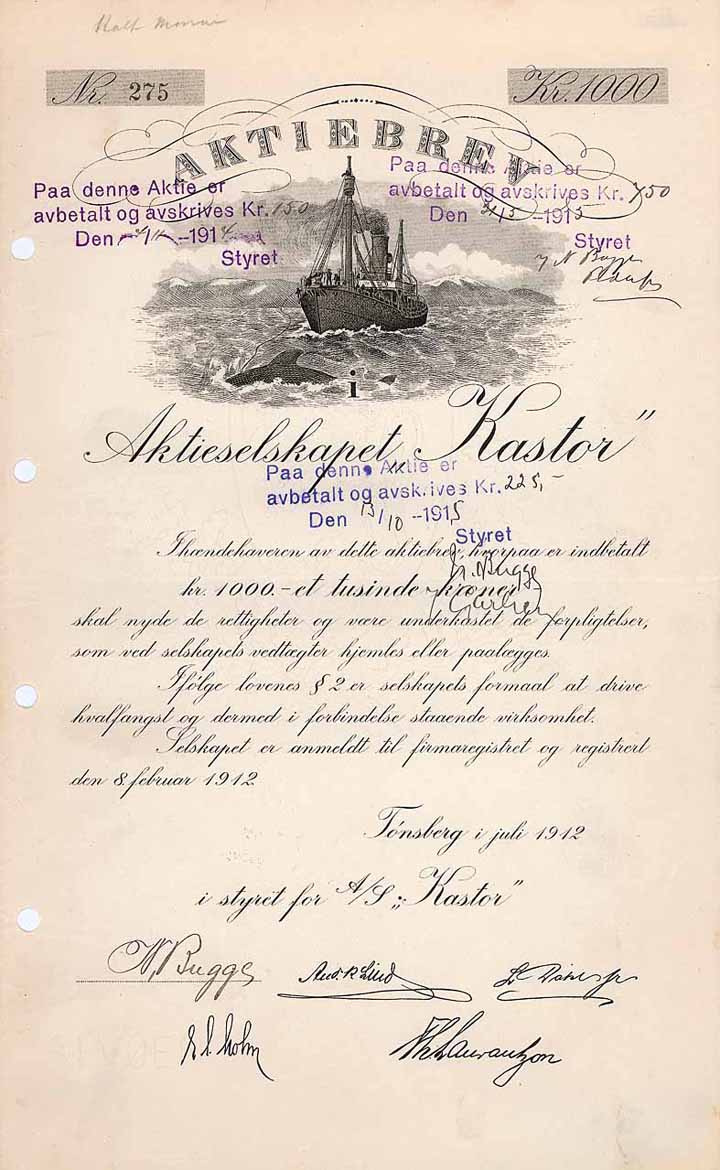 Nr. 275
Kr. 1000
AKTIEBREV
Paa denne Aktie er
avbetalt og avskrives Kr. 150
Den -1914
Styret
Paa denne Aktie er
avbetalt og avskrives Kr. 750
Den -1915
Styret
i
Aktieselskapet „Kastor"
Paa denne Aktie er
avbetalt og avskrives Kr. 225,-
Den 13/10 -1915
Styret
N. Bugge
Ihændehaveren av dette aktiebrev, hvorpaa er indbetalt
kr. 1000.- et tusinde kroner
skal nyde de rettigheter og være underkastet de forpligtelser,
som ved selskapets vedtægter hjemles eller paalægges.
Ifølge lovenes § 2 er selskapets formaal at drive
hvalfangst og dermed i forbindelse staaende virksomhet.
Selskapet er anmeldt til firmaregistret og registrert
den 8. februar 1912.
Tønsberg i juli 1912
i styret for A/S „Kastor"
N. Bugge